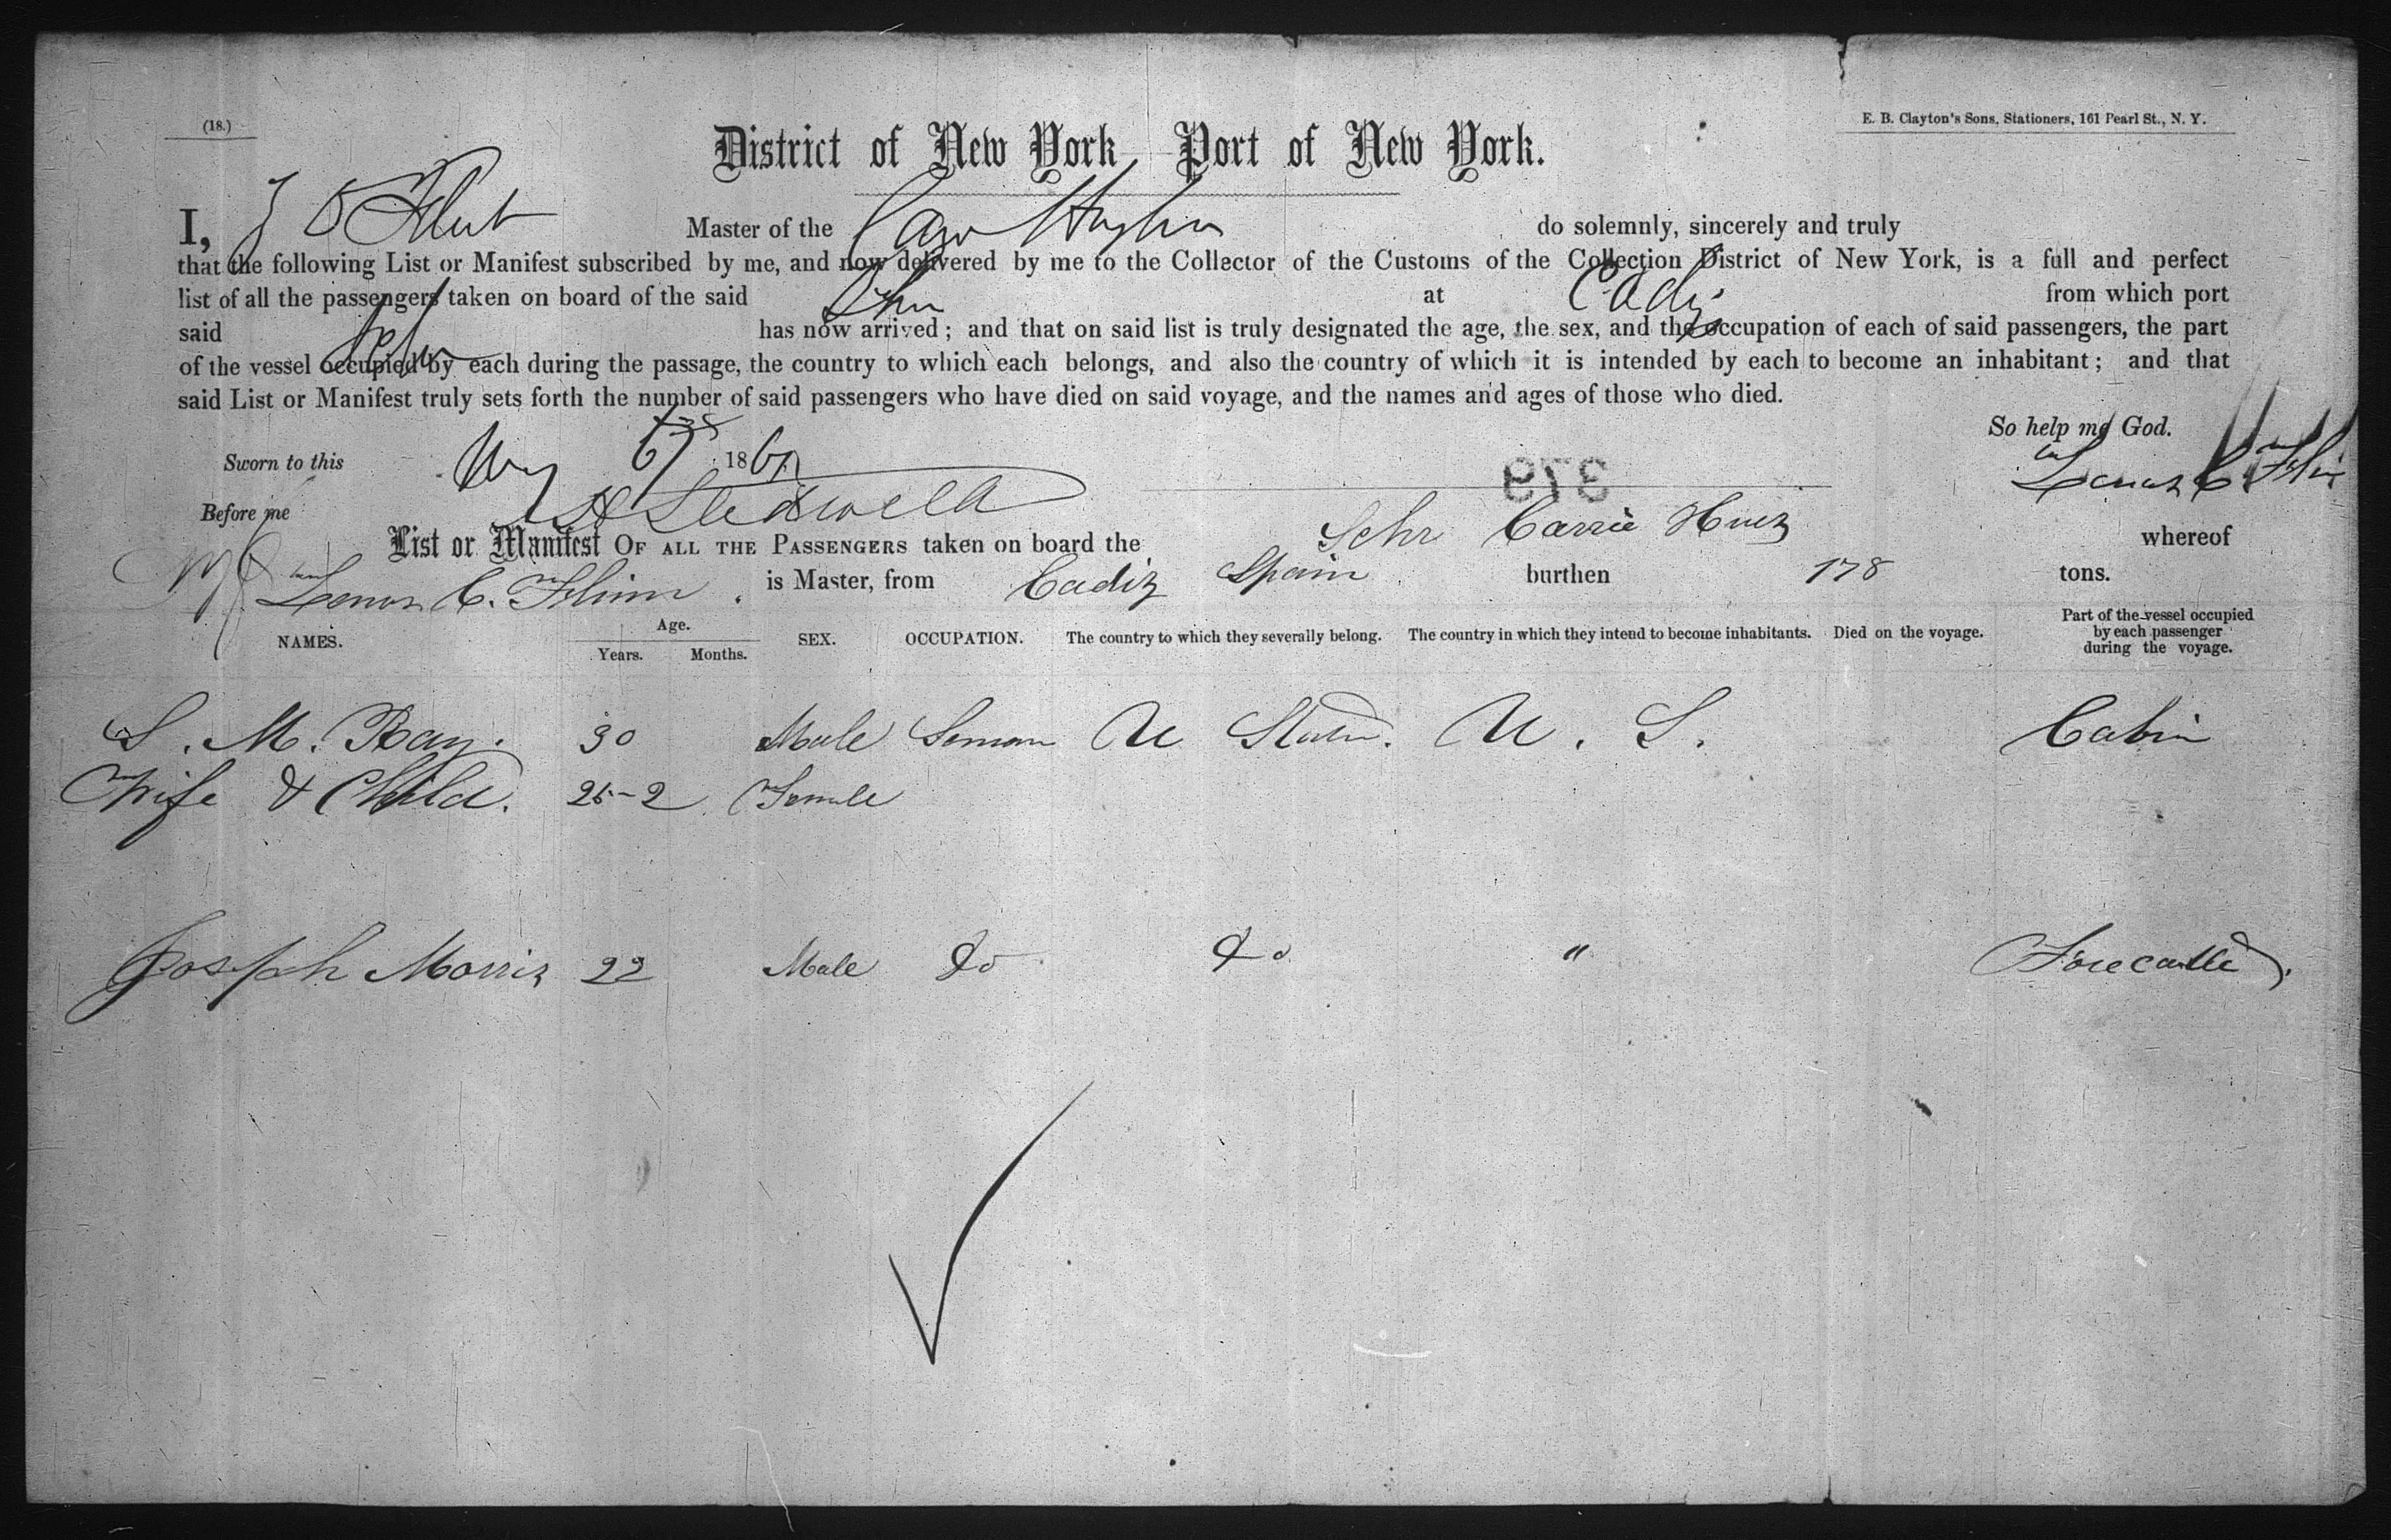 (18.)
E. B. Clayton's Sons, Stationers, 161 Pearl St., N. Y.
District of New York, Port of New York.
I, Master of the do solemnly, sincerely and truly
that the following List or Manifest subscribed by me, and now delivered by me to the Collector of the Customs of the Collection District of New York, is a full and perfect
list of all the passengers taken on board of the said Schr at Cadiz from which port
said Schr has now arrived; and that on said list is truly designated the age, the sex, and the occupation of each of said passengers, the part
of the vessel occupied by each during the passage, the country to which each belongs, and also the country of which it is intended by each to become an inhabitant; and that
said List or Manifest truly sets forth the number of said passengers who have died on said voyage, and the names and ages of those who died.
So help me God.
Sworn to this 186
379
Before me
List or Manifest OF ALL THE PASSENGERS taken on board the Schr Carrie whereof
C. is Master, from Cadiz Spain burthen 178 tons.
NAMES. Age. Years. Months. SEX. OCCUPATION. The country to which they severally belong. The country in which they intend to become inhabitants. Died on the voyage. Part of the vessel occupied by each passenger during the voyage.
S. M. Ray. 30 Male Seman U States. U. S. Cabin
Wife & Child. 25-2 Female
Joseph Morris 22 Male do do " Forecastle.